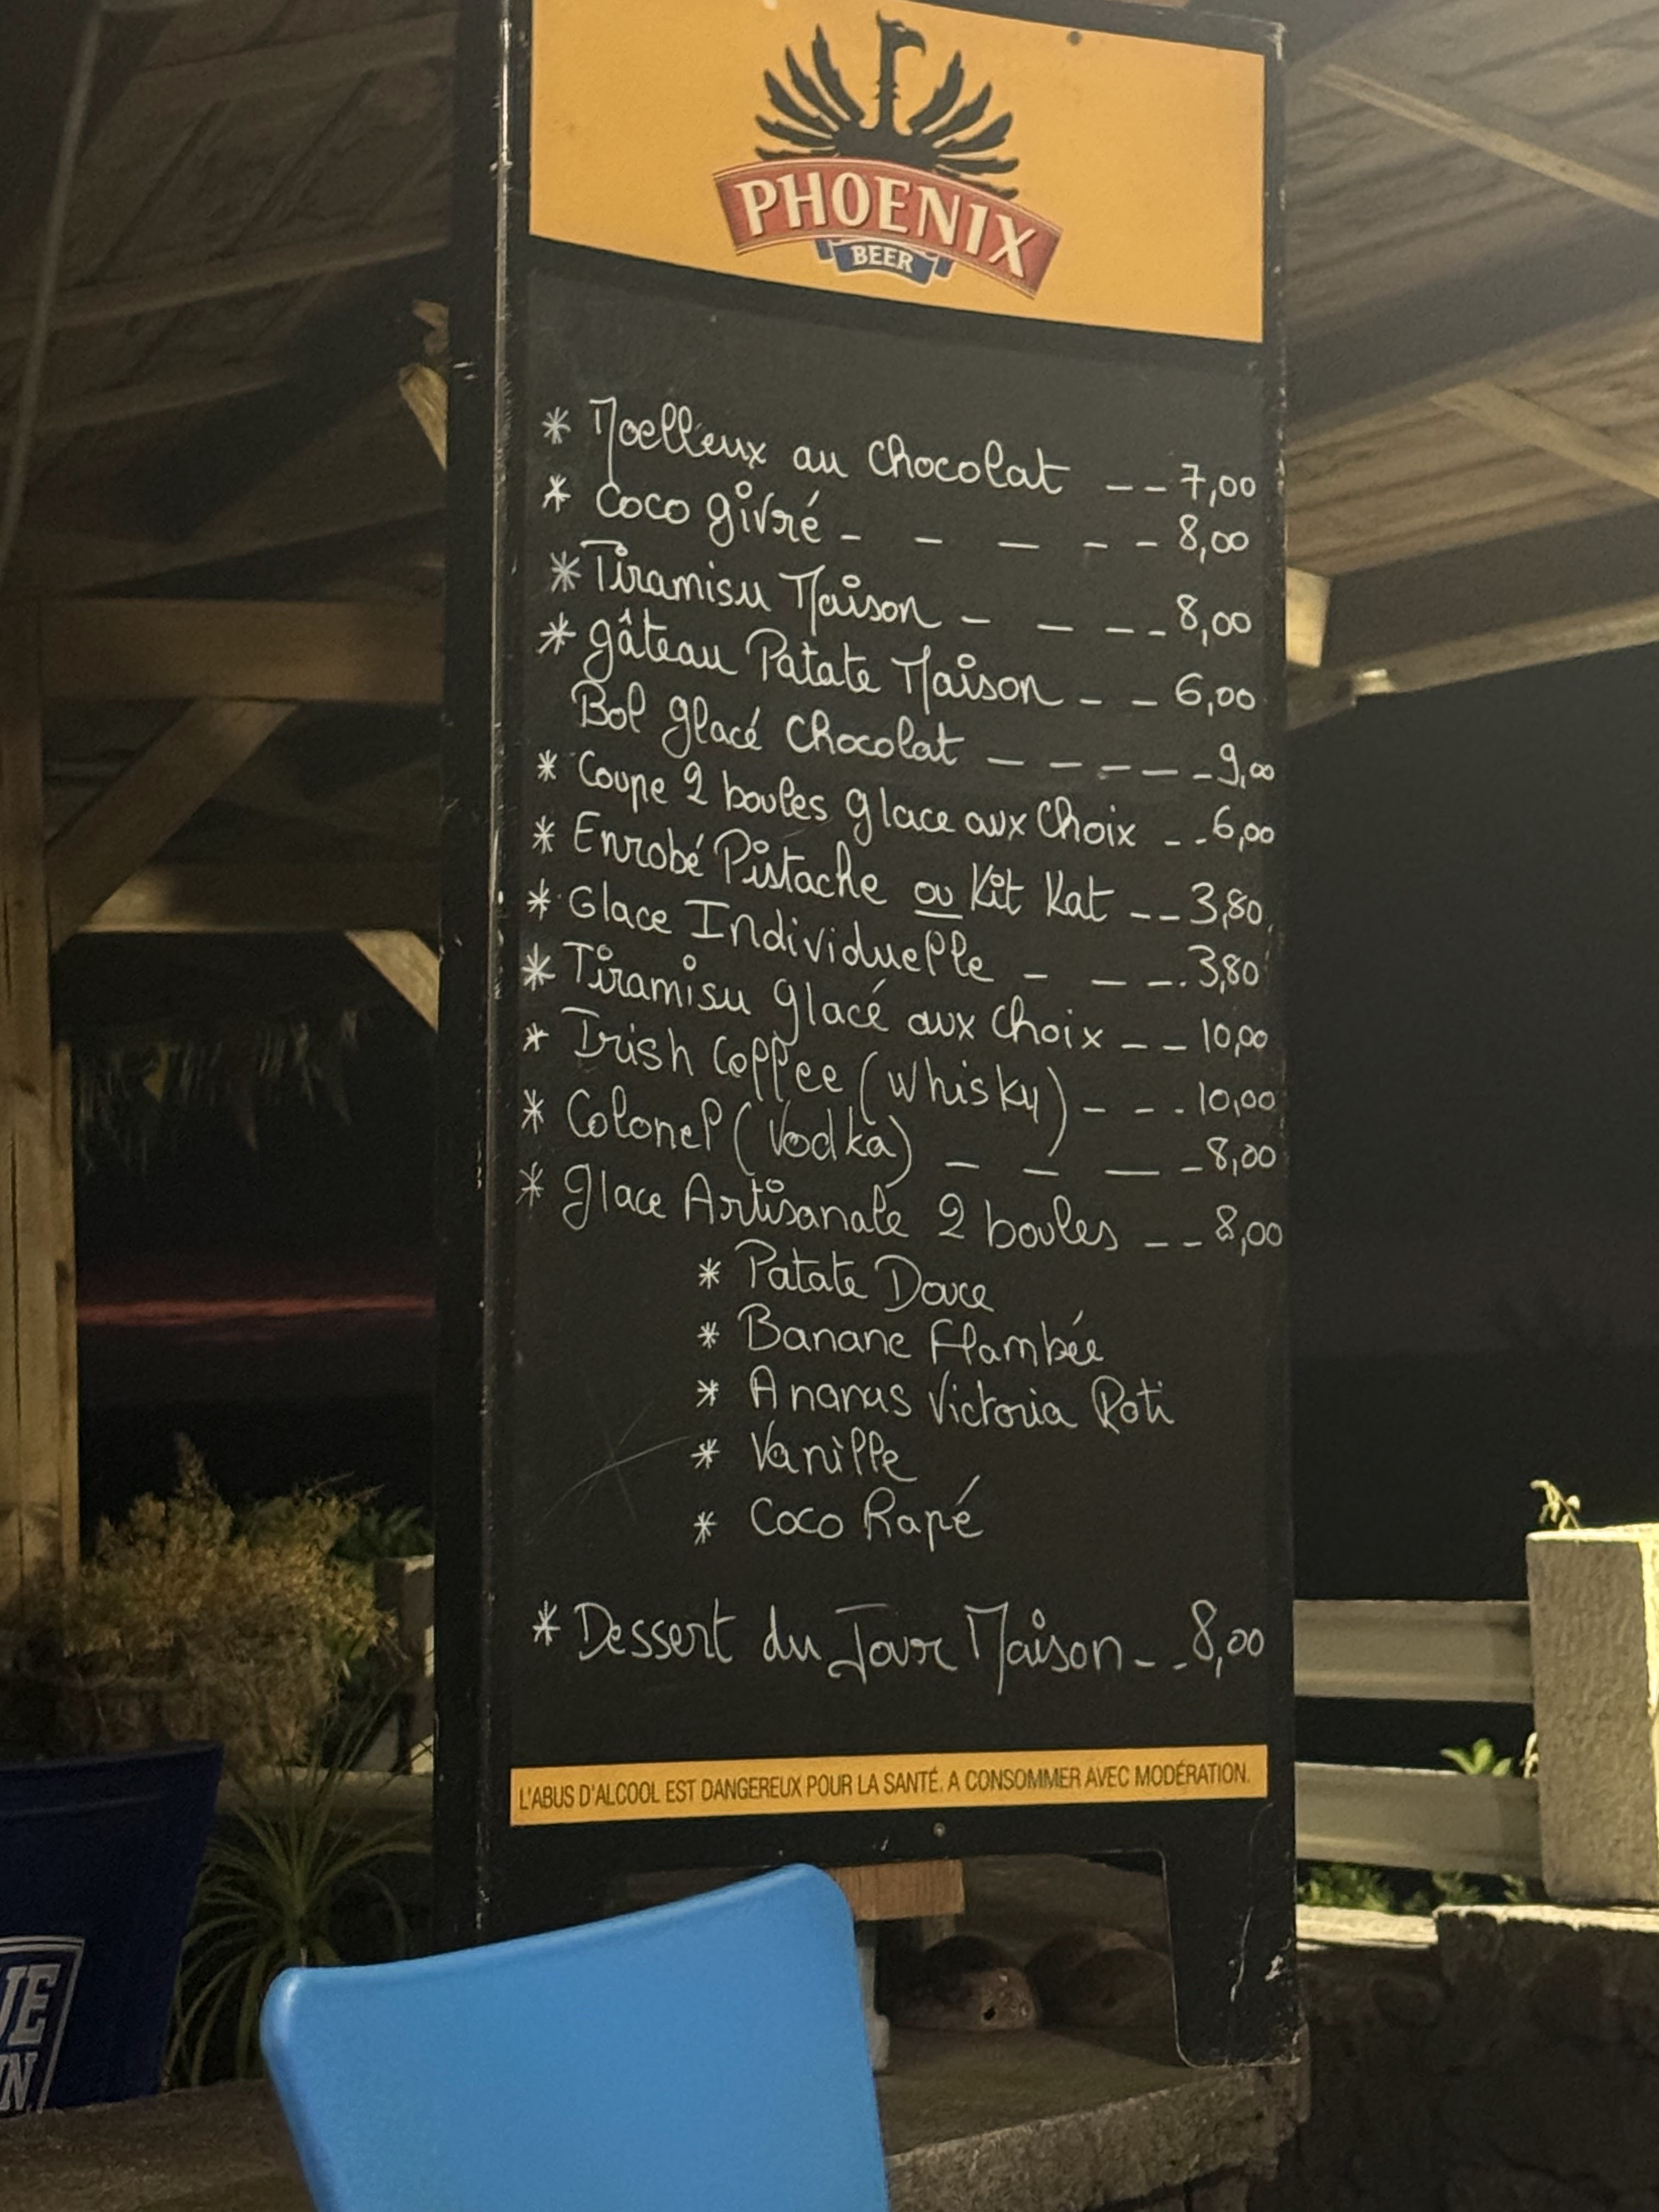 PHOENIX
BEER
* Moelleux au chocolat -- 7,00
* Coco givré - - - - - 8,00
* Tiramisu Maison - - - - 8,00
* gâteau Patate Maison - - 6,00
Bol glacé chocolat - - - - - 9,00
* Coupe 2 boules glace aux choix - - 6,00
* Enrobé Pistache ou Kit Kat -- 3,80
* Glace Individuelle - - - 3,80
* Tiramisu glacé aux choix - - 10,00
* Irish Coffee (whisky) - - - 10,00
* Colonel (Vodka) - - - - 8,00
* glace Artisanale 2 boules - - 8,00
* Patate Douce
* Banane Flambée
* Ananas Victoria Roti
* Vanille
* Coco Rapé
* Dessert du Jour Maison - - 8,00
L'ABUS D'ALCOOL EST DANGEREUX POUR LA SANTÉ. A CONSOMMER AVEC MODÉRATION.